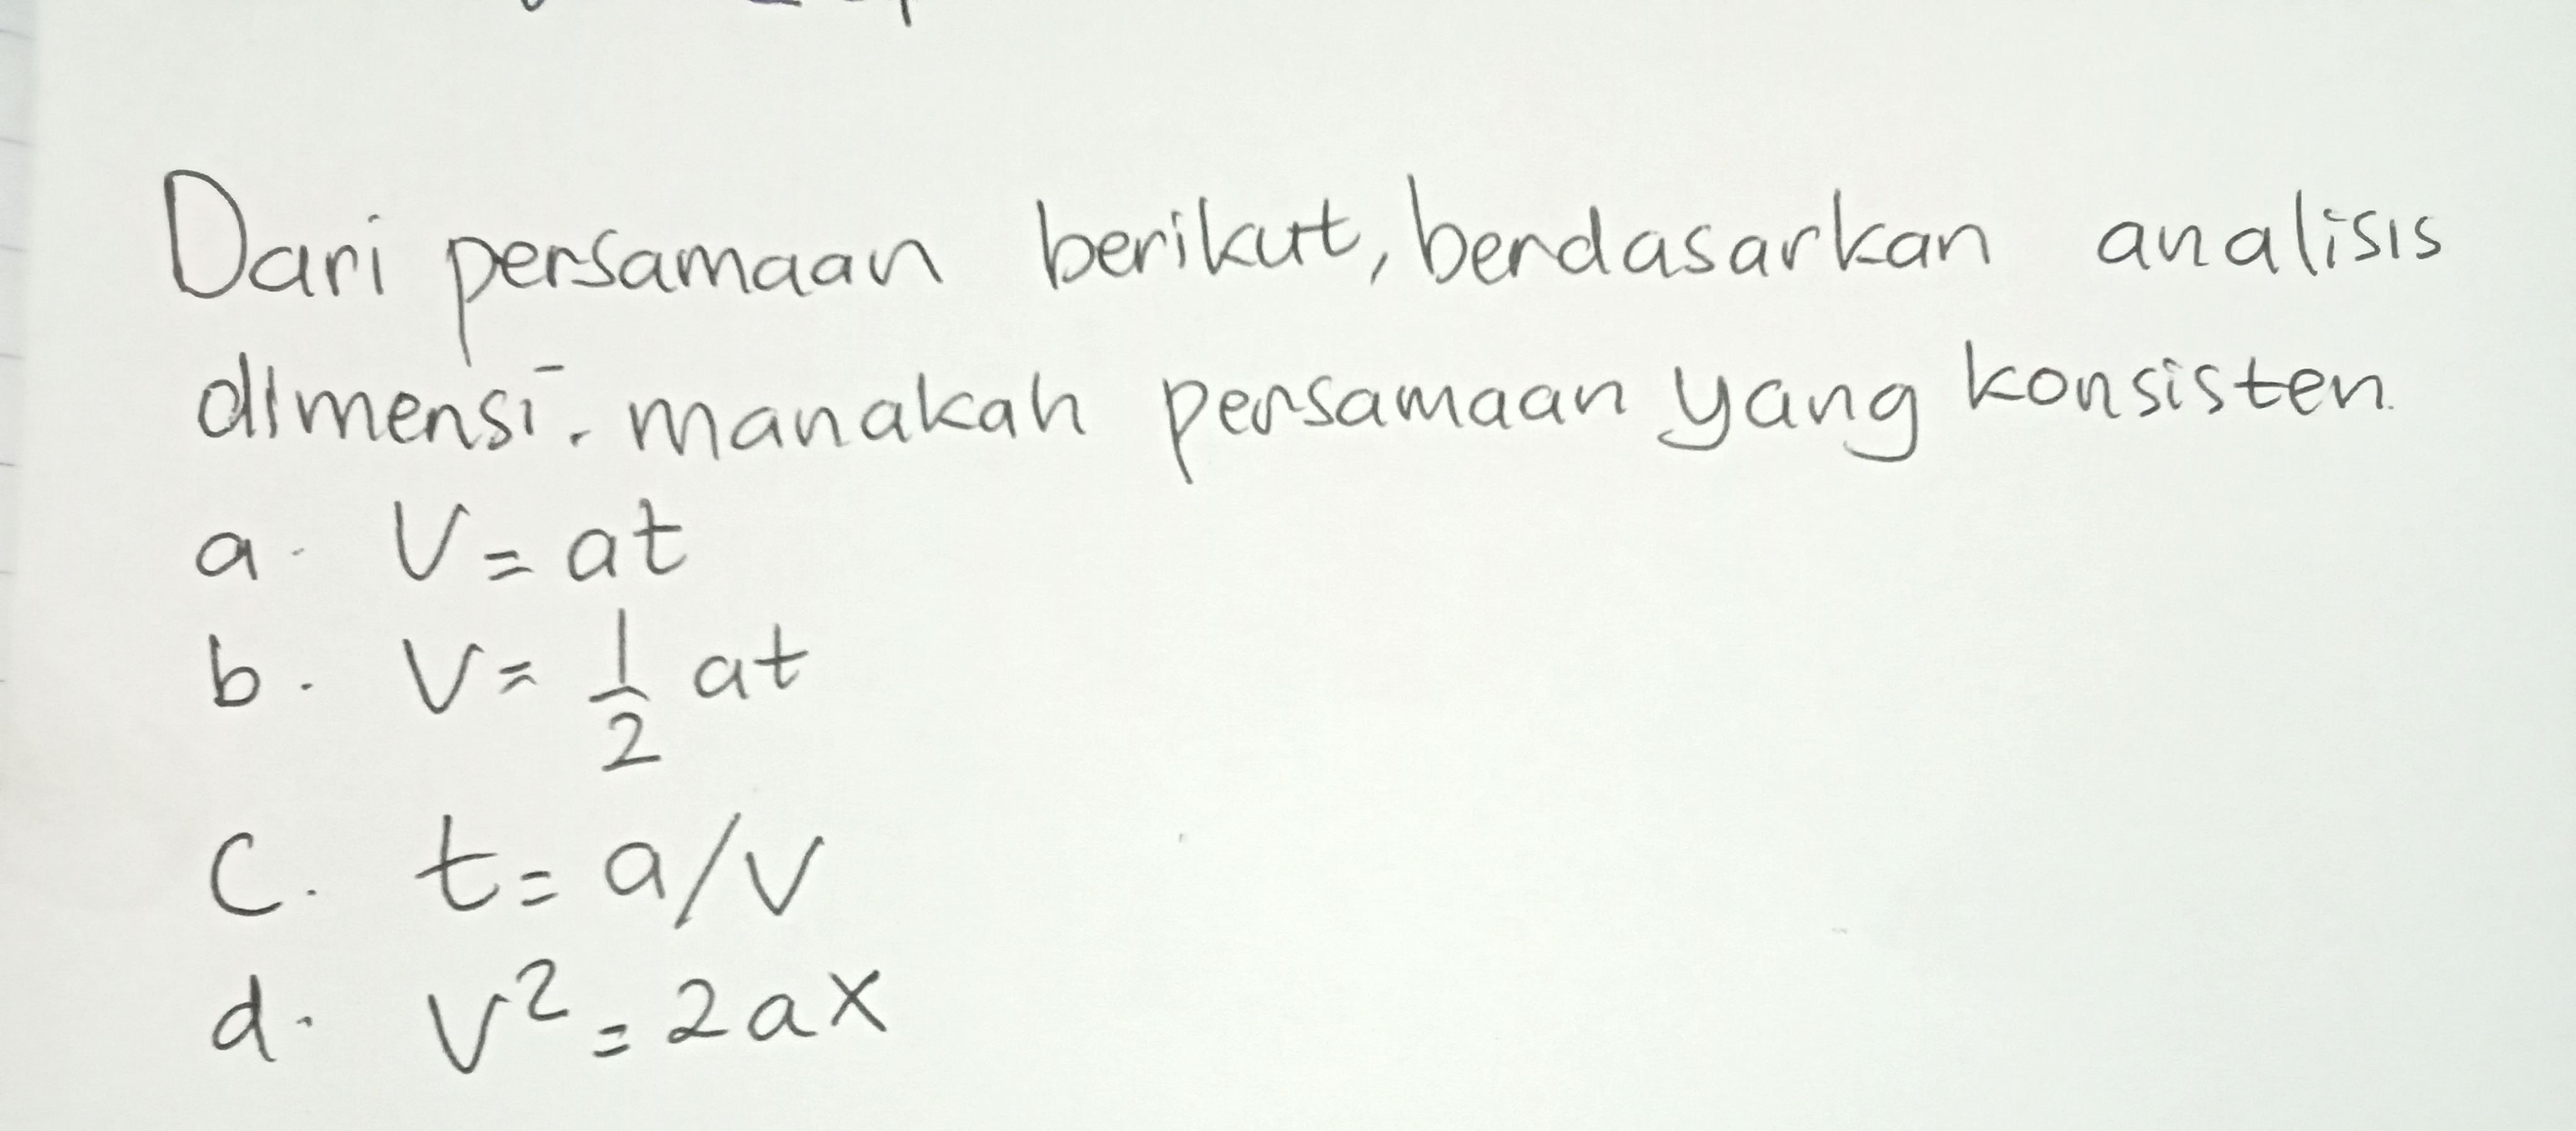 Dari persamaan berikut, berdasarkan analisis
dimensi. manakah persamaan yang konsisten.
a. V = at
b. V = 1/2 at
C. t = a/v
d. V² = 2ax